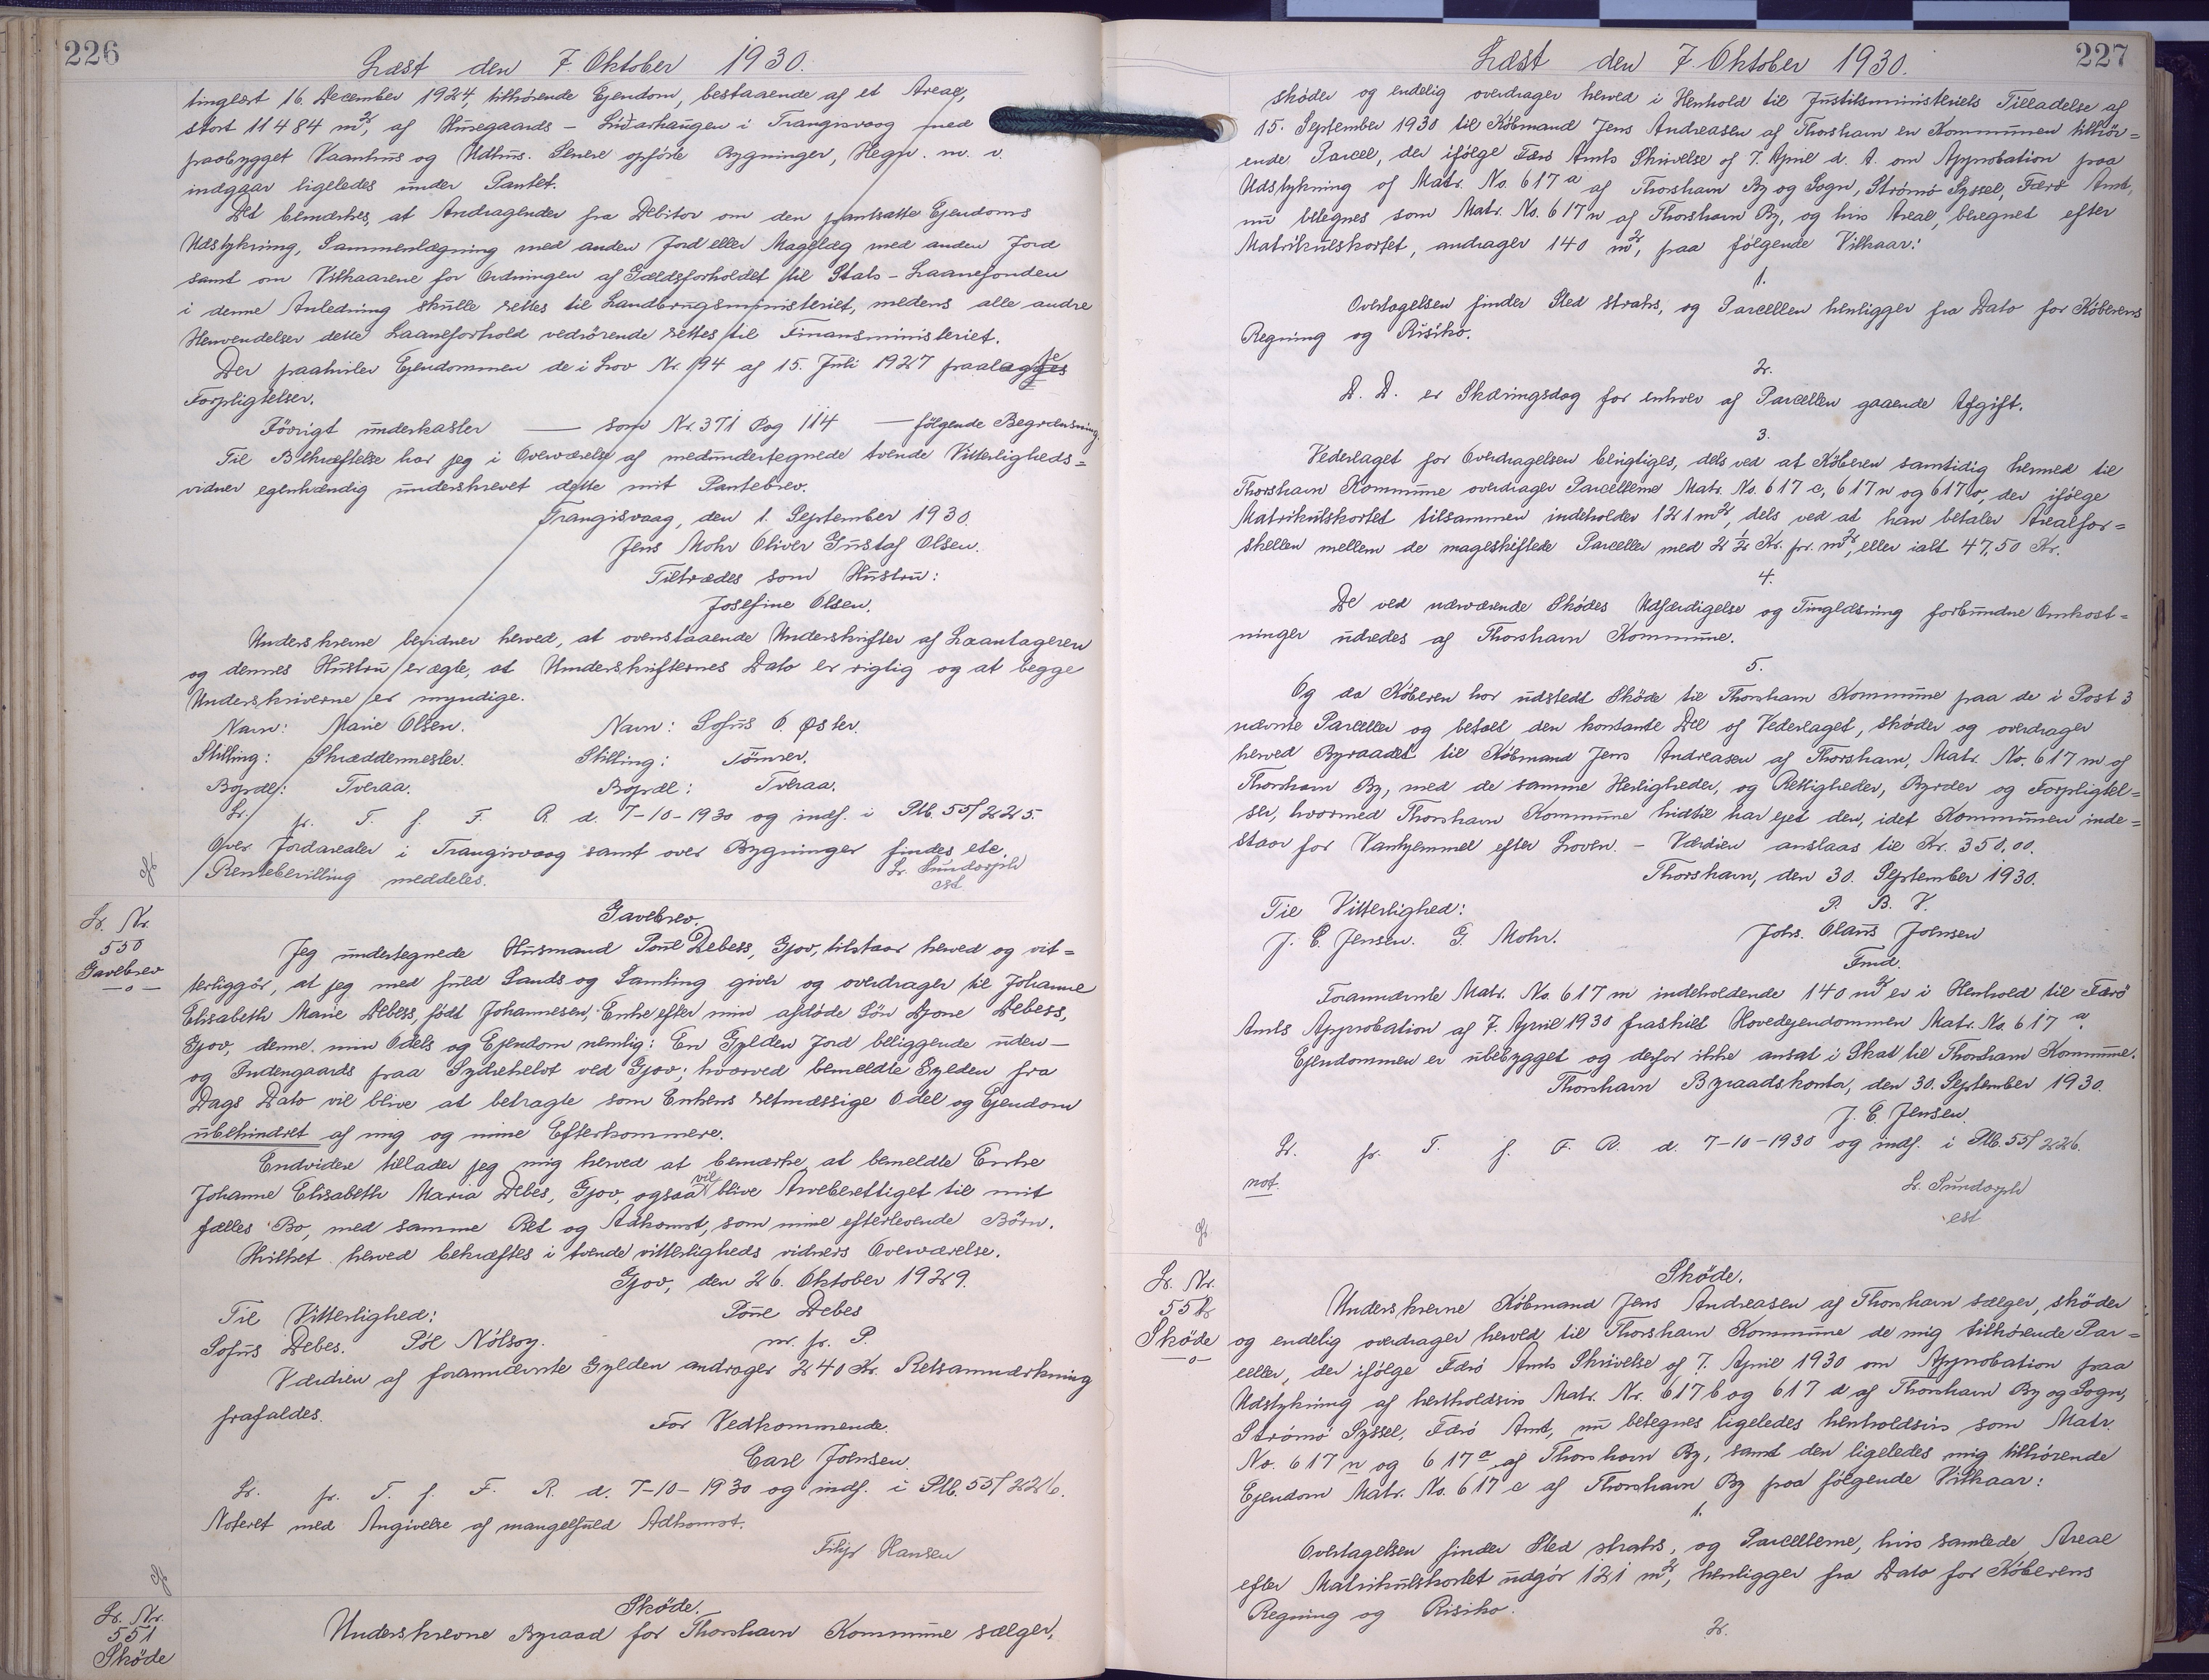 226
Læst den 7. Oktober 1930.
tinglæst 16. December 1924, tilhørende Ejendom, bestaaende af et Areal,
stort 11484 m², af Husegaards - Lidarhaugen i Trangisvaag med
paabygget Vaanhus og Udhus. Senere opførte Bygninger, Hegn. m. v.
indgaar ligeledes under Pantet.
Det bemærkes, at Andragender fra Debitor om den pantsatte Ejendoms
Udstykning, Sammenlægning med anden Jord eller Magelæg med anden Jord
samt om Vilkaarene for Ordningen af Gældsforholdet til Stats-Laanefonden
i denne Anledning skulle rettes til Landbrugsministeriet, medens alle andre
Henvendelser dette Laaneforhold vedrörende rettes til Finansministeriet.
Der paahviler Ejendommen de i Lov Nr. 194 af 15. Juli 1927 paalagte
Forpligtelser.
Iövrigt underkaster — som Nr. 371 Pag 114 — følgende Begrænsning.
Til Bekræftelse har jeg i Overværelse af medundertegnede tvende Vitterligheds=
vidner egenhændig underskrevet dette mit Pantebrev.
Trangisvaag, den 1. September 1930.
Jens Mohr Oliver Gustaf Olsen.
Tiltrædes som Hustru:
Josefine Olsen.
Underskrevne bevidner herved, at ovenstaaende Underskrifter af Laantageren
og dennes Hustru er ægte, at Underskrifternes Dato er rigtig og at begge
Underskriverne er myndige.
Navn: Marie Olsen. Navn: Sofus O. Øster.
Stilling: Skræddermester. Stilling: Tömrer.
Bopæl: Tveraa. Bopæl: Tveraa.
Lr. pr. T. f. F. R. d. 7-10-1930 og indf. i Ptb. 55/225.
Over Jordarealer i Trangisvaag samt over Bygninger findes ete.
Rentebevilling meddeles. Lr. Sundorph
cst.
Lr. Nr.
550
Gavebrev
—o—
Gavebrev.
Jeg undertegnede Husmand Poul Debess, Gjov, tilstaar herved og vit=
terliggør, at jeg med fuld Sands og Samling giver og overdrager til Johanne
Elisabeth Marie Debess, født Johannesen, Enke efter min afdöde Sön Djone Debess,
Gjov, denne min Odels og Ejendom nemlig: En Gylden Jord beliggende uden-
og Indengaards paa Sydrehelvt ved Gjov; hvorved bemeldte Gylden fra
Dags Dato vil blive at betragte som Enkens retmæssige Odel og Ejendom
ubehindret af mig og mine Efterkommere.
Endvidere tillader jeg mig herved at bemærke at bemeldte Enke
Johanne Elisabeth Maria Debes, Gjov, ogsaa vil blive Arveberettiget til mit
fælles Bo, med samme Ret og Adkomst, som mine efterlevende Börn.
Hvilket herved bekræftes i tvende vitterligheds vidners Overværelse.
Gjov, den 26. Oktober 1929.
Til Vitterlighed: Poul Debes
Sofus Debes. Pól Nólsoy. m. f. P.
Værdien af forannævnte Gylden andrager 240 Kr. Retsanmærkning
frafaldes.
For Vedkommende.
Carl Joensen.
Lr. pr. T. f. F. R. d. 7-10-1930 og indf. i Ptb. 55/226.
Noteret med Angivelse af mangelfuld Adkomst.
Filip Hansen
Lr. Nr.
551
Sköde
Sköde.
Underskrevne Byraad for Thorshavn Kommune sælger,
227
Læst den 7. Oktober 1930.
sköder og endelig overdrager herved i Henhold til Justitsministeriets Tilladelse af
15. September 1930 til Köbmand Jens Andreasen af Thorshavn en Kommunen tilhör=
ende Parcel, der ifölge Færö Amts Skrivelse af 7. April d. A. om Approbation paa
Udstykning af Matr. No. 617 a af Thorshavn By og Sogn, Strömö Syssel, Færö Amt,
nu betegnes som Matr. No. 617 m af Thorshavn By, og hvis Areal, beregnet efter
Matrikulskortet, andrager 140 m², paa fölgende Vilkaar:
1.
Overtagelsen finder Sted straks, og Parcellen henligger fra Dato for Köberens
Regning og Risiko.
2.
D. D. er Skæringsdag for enhver af Parcellen gaaende Afgift.
3.
Vederlaget for Overdragelsen berigtiges, dels ved at Köberen samtidig hermed til
Thorshavn Kommune overdrager Parcellerne Matr. No. 617 c, 617 n og 617 o, der ifölge
Matrikulskortet tilsammen indeholder 121 m², dels ved at han betaler Arealfor=
skellen mellem de mageskiftede Parceller med 2 ½ Kr. pr. m², eller ialt 47,50 Kr.
4.
De ved nærværende Sködes Udfærdigelse og Tinglæsning forbundne Omkost=
ninger udredes af Thorshavn Kommune.
5.
Og da Köberen har udstedt Sköde til Thorshavn Kommune paa de i Post 3
nævnte Parceller og betalt den kontante Del af Vederlaget, sköder og overdrager
herved Byraadet til Köbmand Jens Andreasen af Thorshavn, Matr. No. 617 m af
Thorshavn By, med de samme Herligheder, og Rettigheder, Byrder og Forpligtel=
ser, hvormed Thorshavn Kommune hidtil har ejet den, idet Kommunen inde=
staar for Vanhjemmel efter Loven. - Værdien anslaas til Kr. 350,00.
Thorshavn, den 30. September 1930.
Til Vitterlighed: P. B. V.
J. E. Jensen. G. Mohr. Johs. Olaus Joensen
Fmd.
Forannævnte Matr. No. 617 m indeholdende 140 m² er i Henhold til Færö
Amts Approbation af 7. April 1930 fraskilt Hovedejendommen Matr. No. 617 a.
Ejendommen er ubebygget og derfor ikke ansat i Skat til Thorshavn Kommune.
Thorshavn Byraadskontor, den 30. September 1930.
J. E. Jensen.
Lr. pr. T. f. F. R. d. 7-10-1930 og indf. i Ptb. 55/226.
not. Lr. Sundorph
cst
Lr. Nr.
552
Sköde
—o—
Sköde.
Underskrevne Köbmand Jens Andreasen af Thorshavn sælger, sköder
og endelig overdrager herved til Thorshavn Kommune de mig tilhörende Par=
celler, der ifölge Færö Amts Skrivelse af 7. April 1930 om Approbation paa
Udstykning af henholdsvis Matr. Nr. 617 b og 617 d af Thorshavn By og Sogn,
Strömö Syssel, Færö Amt, nu betegnes ligeledes henholdsvis som Matr.
No. 617 n og 617 o af Thorshavn By, samt den ligeledes mig tilhörende
Ejendom Matr. No. 617 c af Thorshavn By paa fölgende Vilkaar:
1.
Overtagelsen finder Sted straks, og Parcellerne, hvis samlede Areal
efter Matrikulskortet udgör 121 m², henligger fra Dato for Köberens
Regning og Risiko.
2.